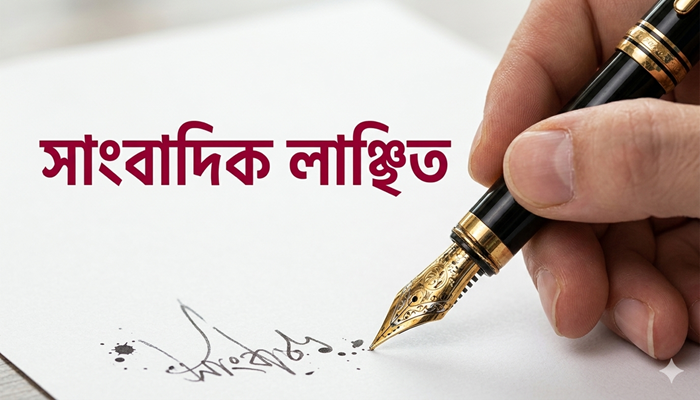 সাংবাদিক লাঞ্ছিত